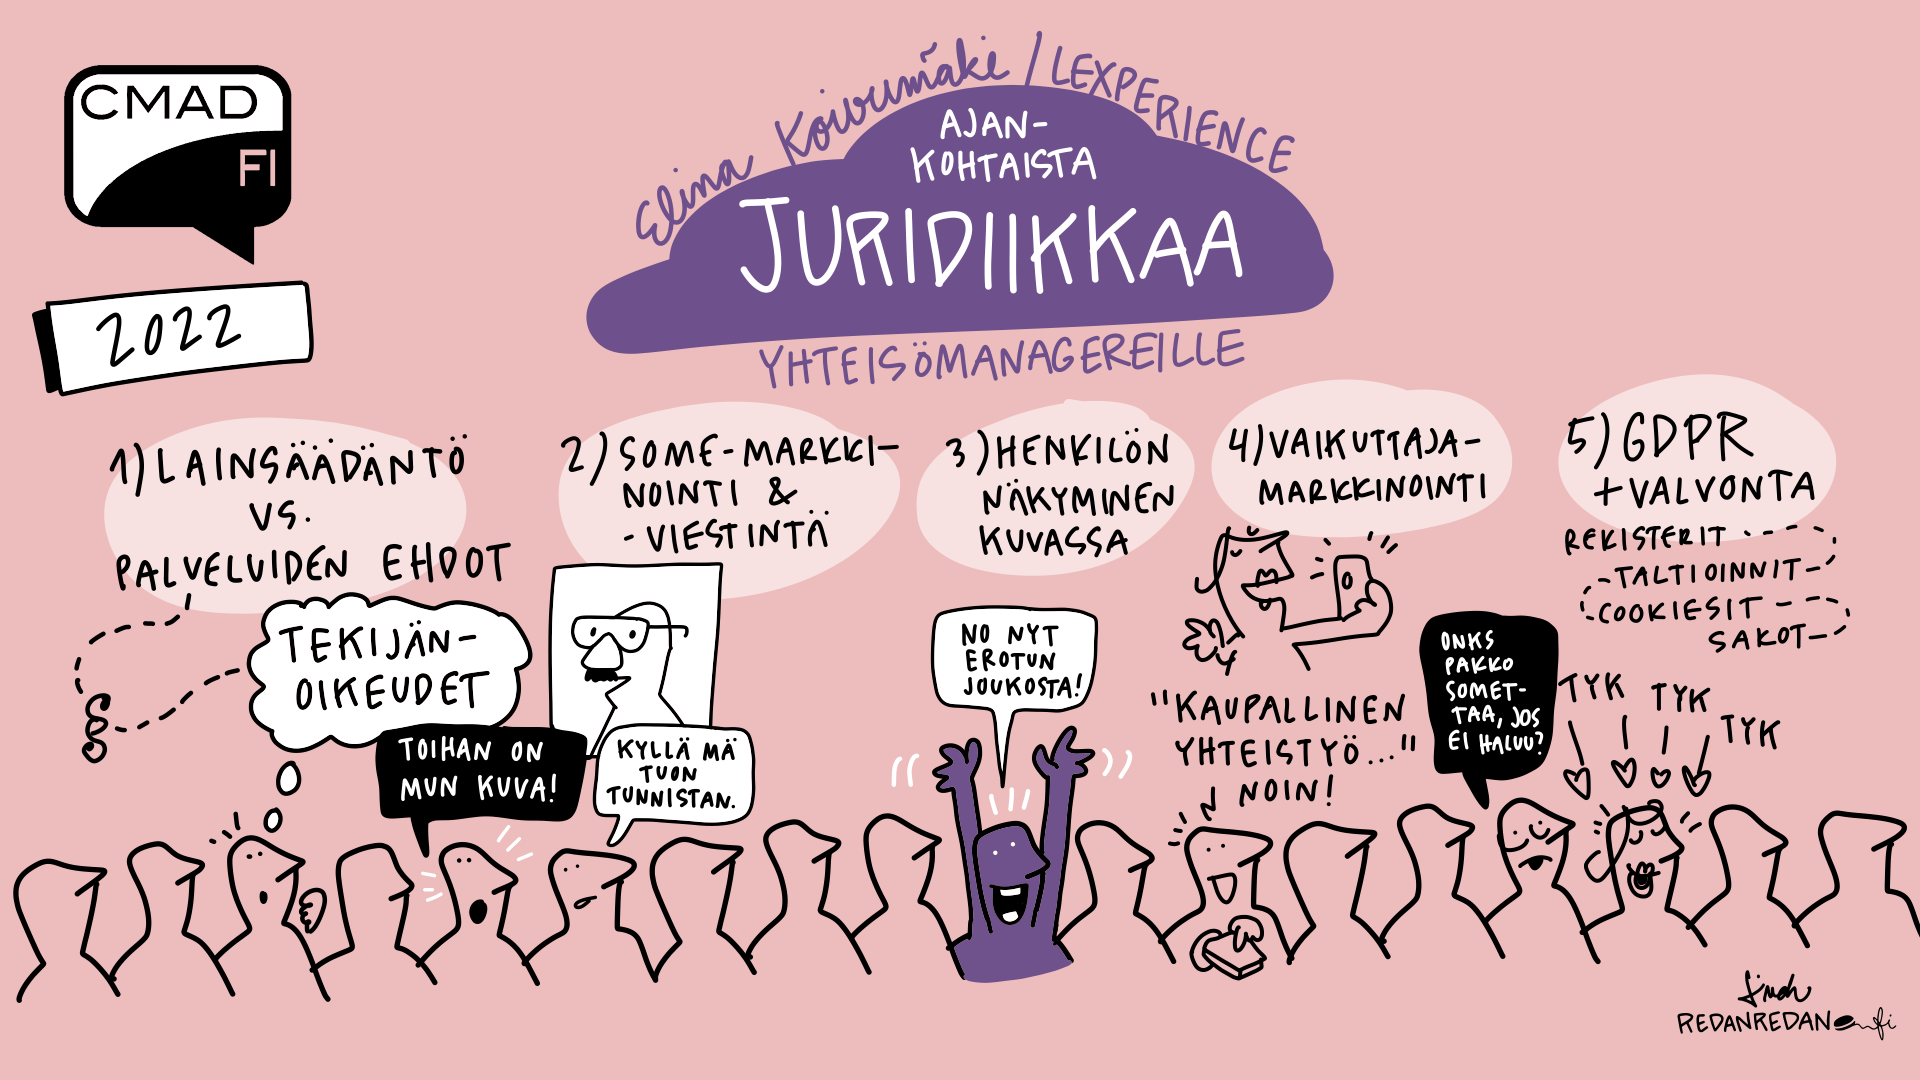 CMAD
FI
2022
Elina Koivumäki / LEXPERIENCE
AJAN-
KOHTAISTA
JURIDIIKKAA
YHTEISÖMANAGEREILLE
1) LAINSÄÄDÄNTÖ
VS.
PALVELUIDEN EHDOT
§
TEKIJÄN-
OIKEUDET
TOIHAN ON
MUN KUVA!
2) SOME-MARKKI-
NOINTI &
-VIESTINTÄ
KYLLÄ MÄ
TUON
TUNNISTAN.
3) HENKILÖN
NÄKYMINEN
KUVASSA
NO NYT
EROTUN
JOUKOSTA!
4) VAIKUTTAJA-
MARKKINOINTI
"KAUPALLINEN
YHTEISTYÖ..."
NOIN!
5) GDPR
+ VALVONTA
REKISTERIT
TALTIOINNIT
COOKIESIT
SAKOT
ONKS
PAKKO
SOMET-
TAA, JOS
EI HALUU?
TYK
TYK
TYK
REDANREDAN